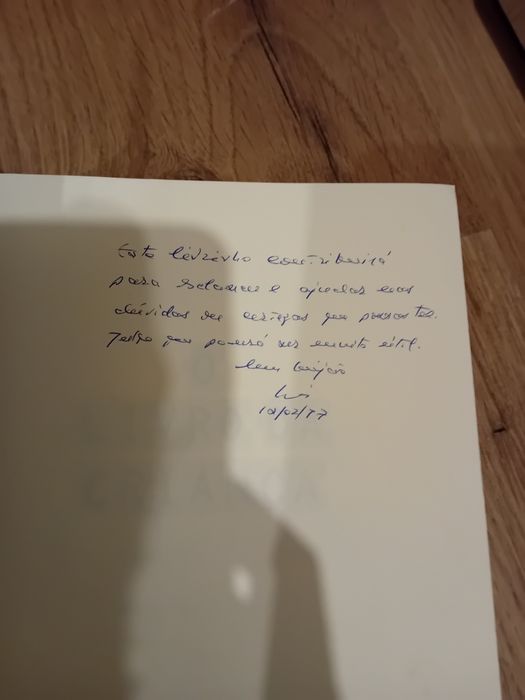 Este livrinho contribuirá
para esclarecer e ajudar nas
dúvidas ou que possas ter.
Julgo que poderá ser muito útil.
Um beijão
Luis
12/02/77